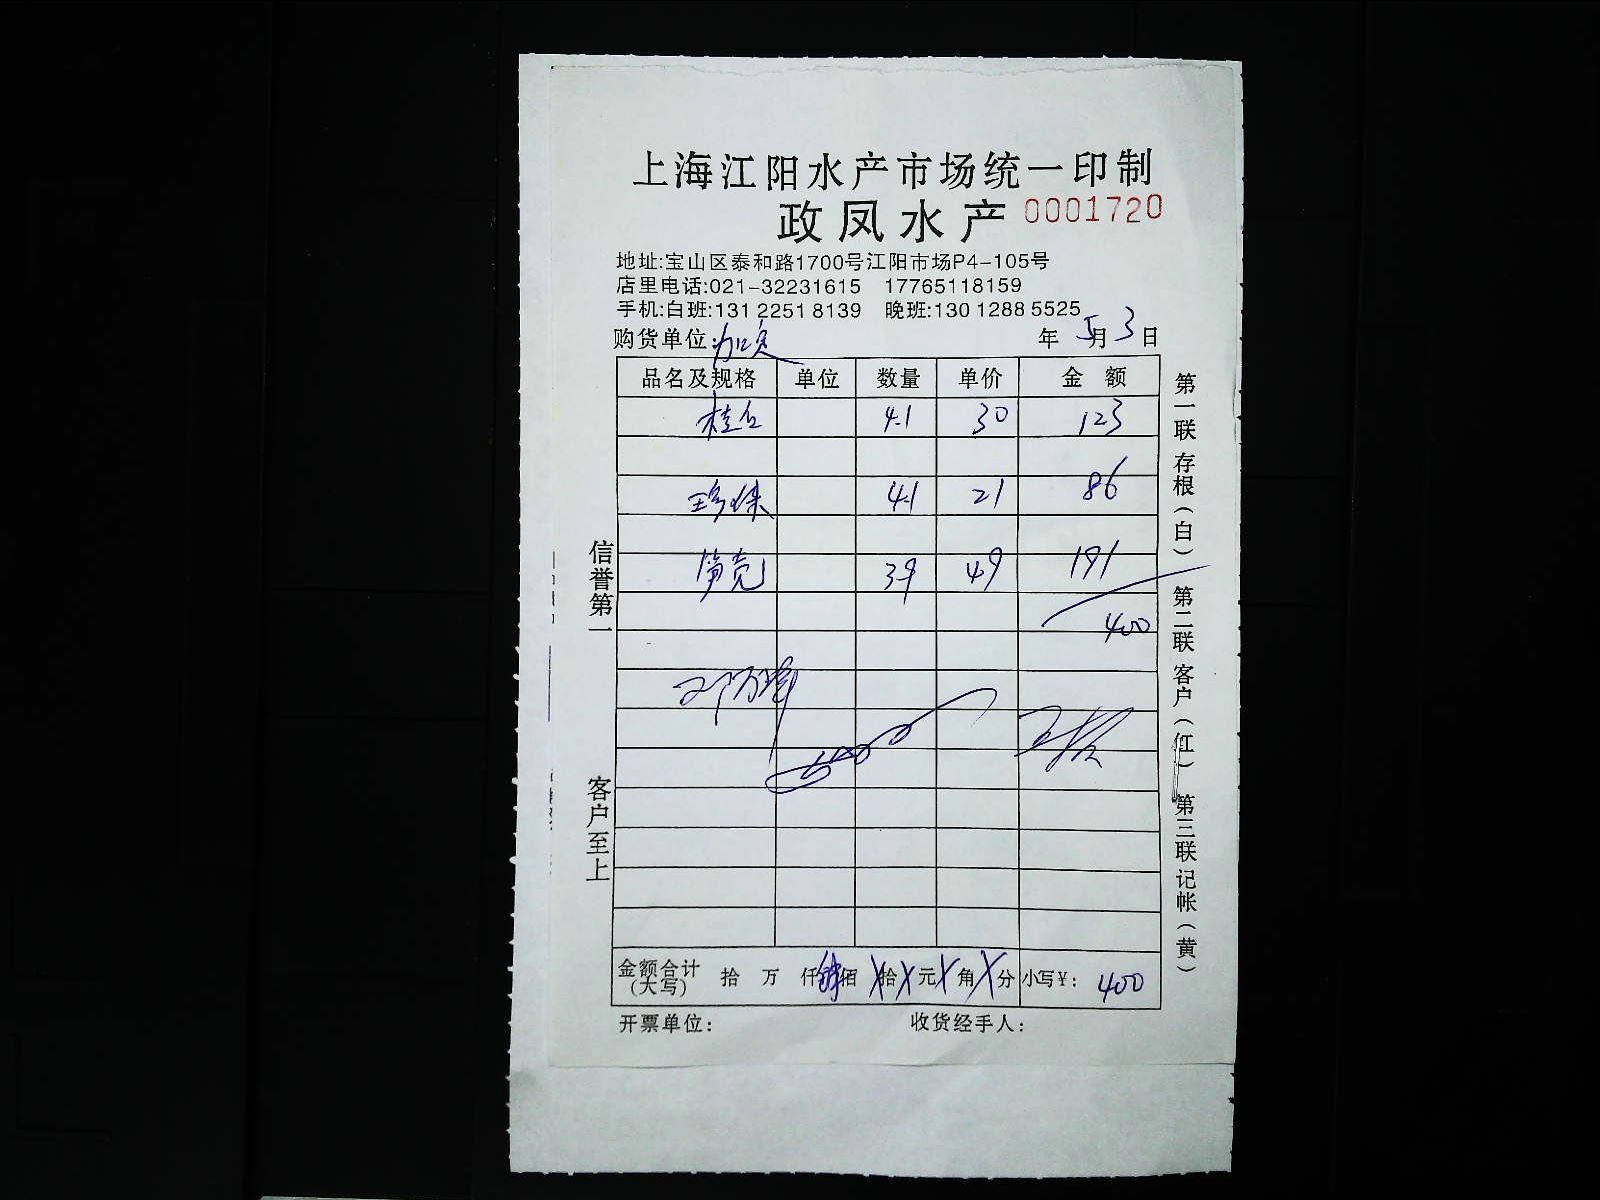 上海江阳水产市场统一印制
政凤水产 0001720
地址:宝山区泰和路1700号江阳市场P4-105号
店里电话:021-32231615 17765118159
手机:白班:131 2251 8139 晚班:130 1288 5525
购货单位:加定 年 5月 3日
品名及规格 单位 数量 单价 金额
桂 4.1 30 123
珍珠 4.1 21 86
笋壳 3.9 49 191
400
金额合计(大写) 拾 万 仟 肆佰 拾 元 角 分 小写¥: 400
开票单位: 收货经手人:
信誉第一
客户至上
第一联 存根(白) 第二联 客户(红) 第三联 记帐(黄)